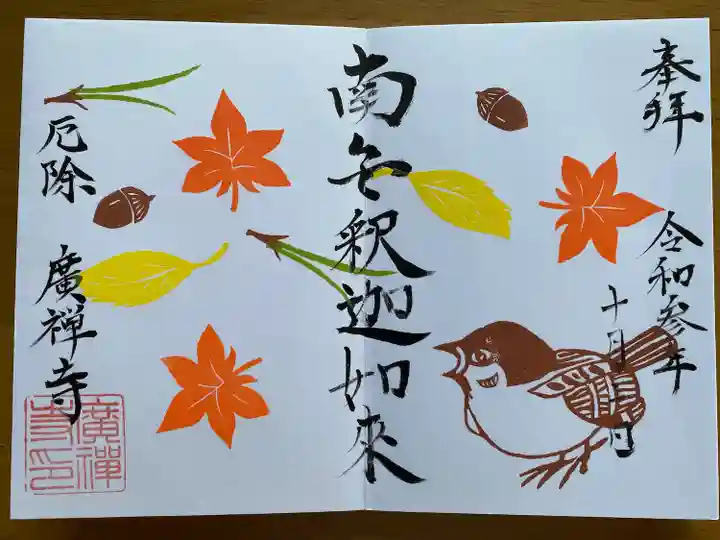 奉拝
令和参年
十月
南無釈迦如來
厄除
廣禅寺
廣禪
寺印